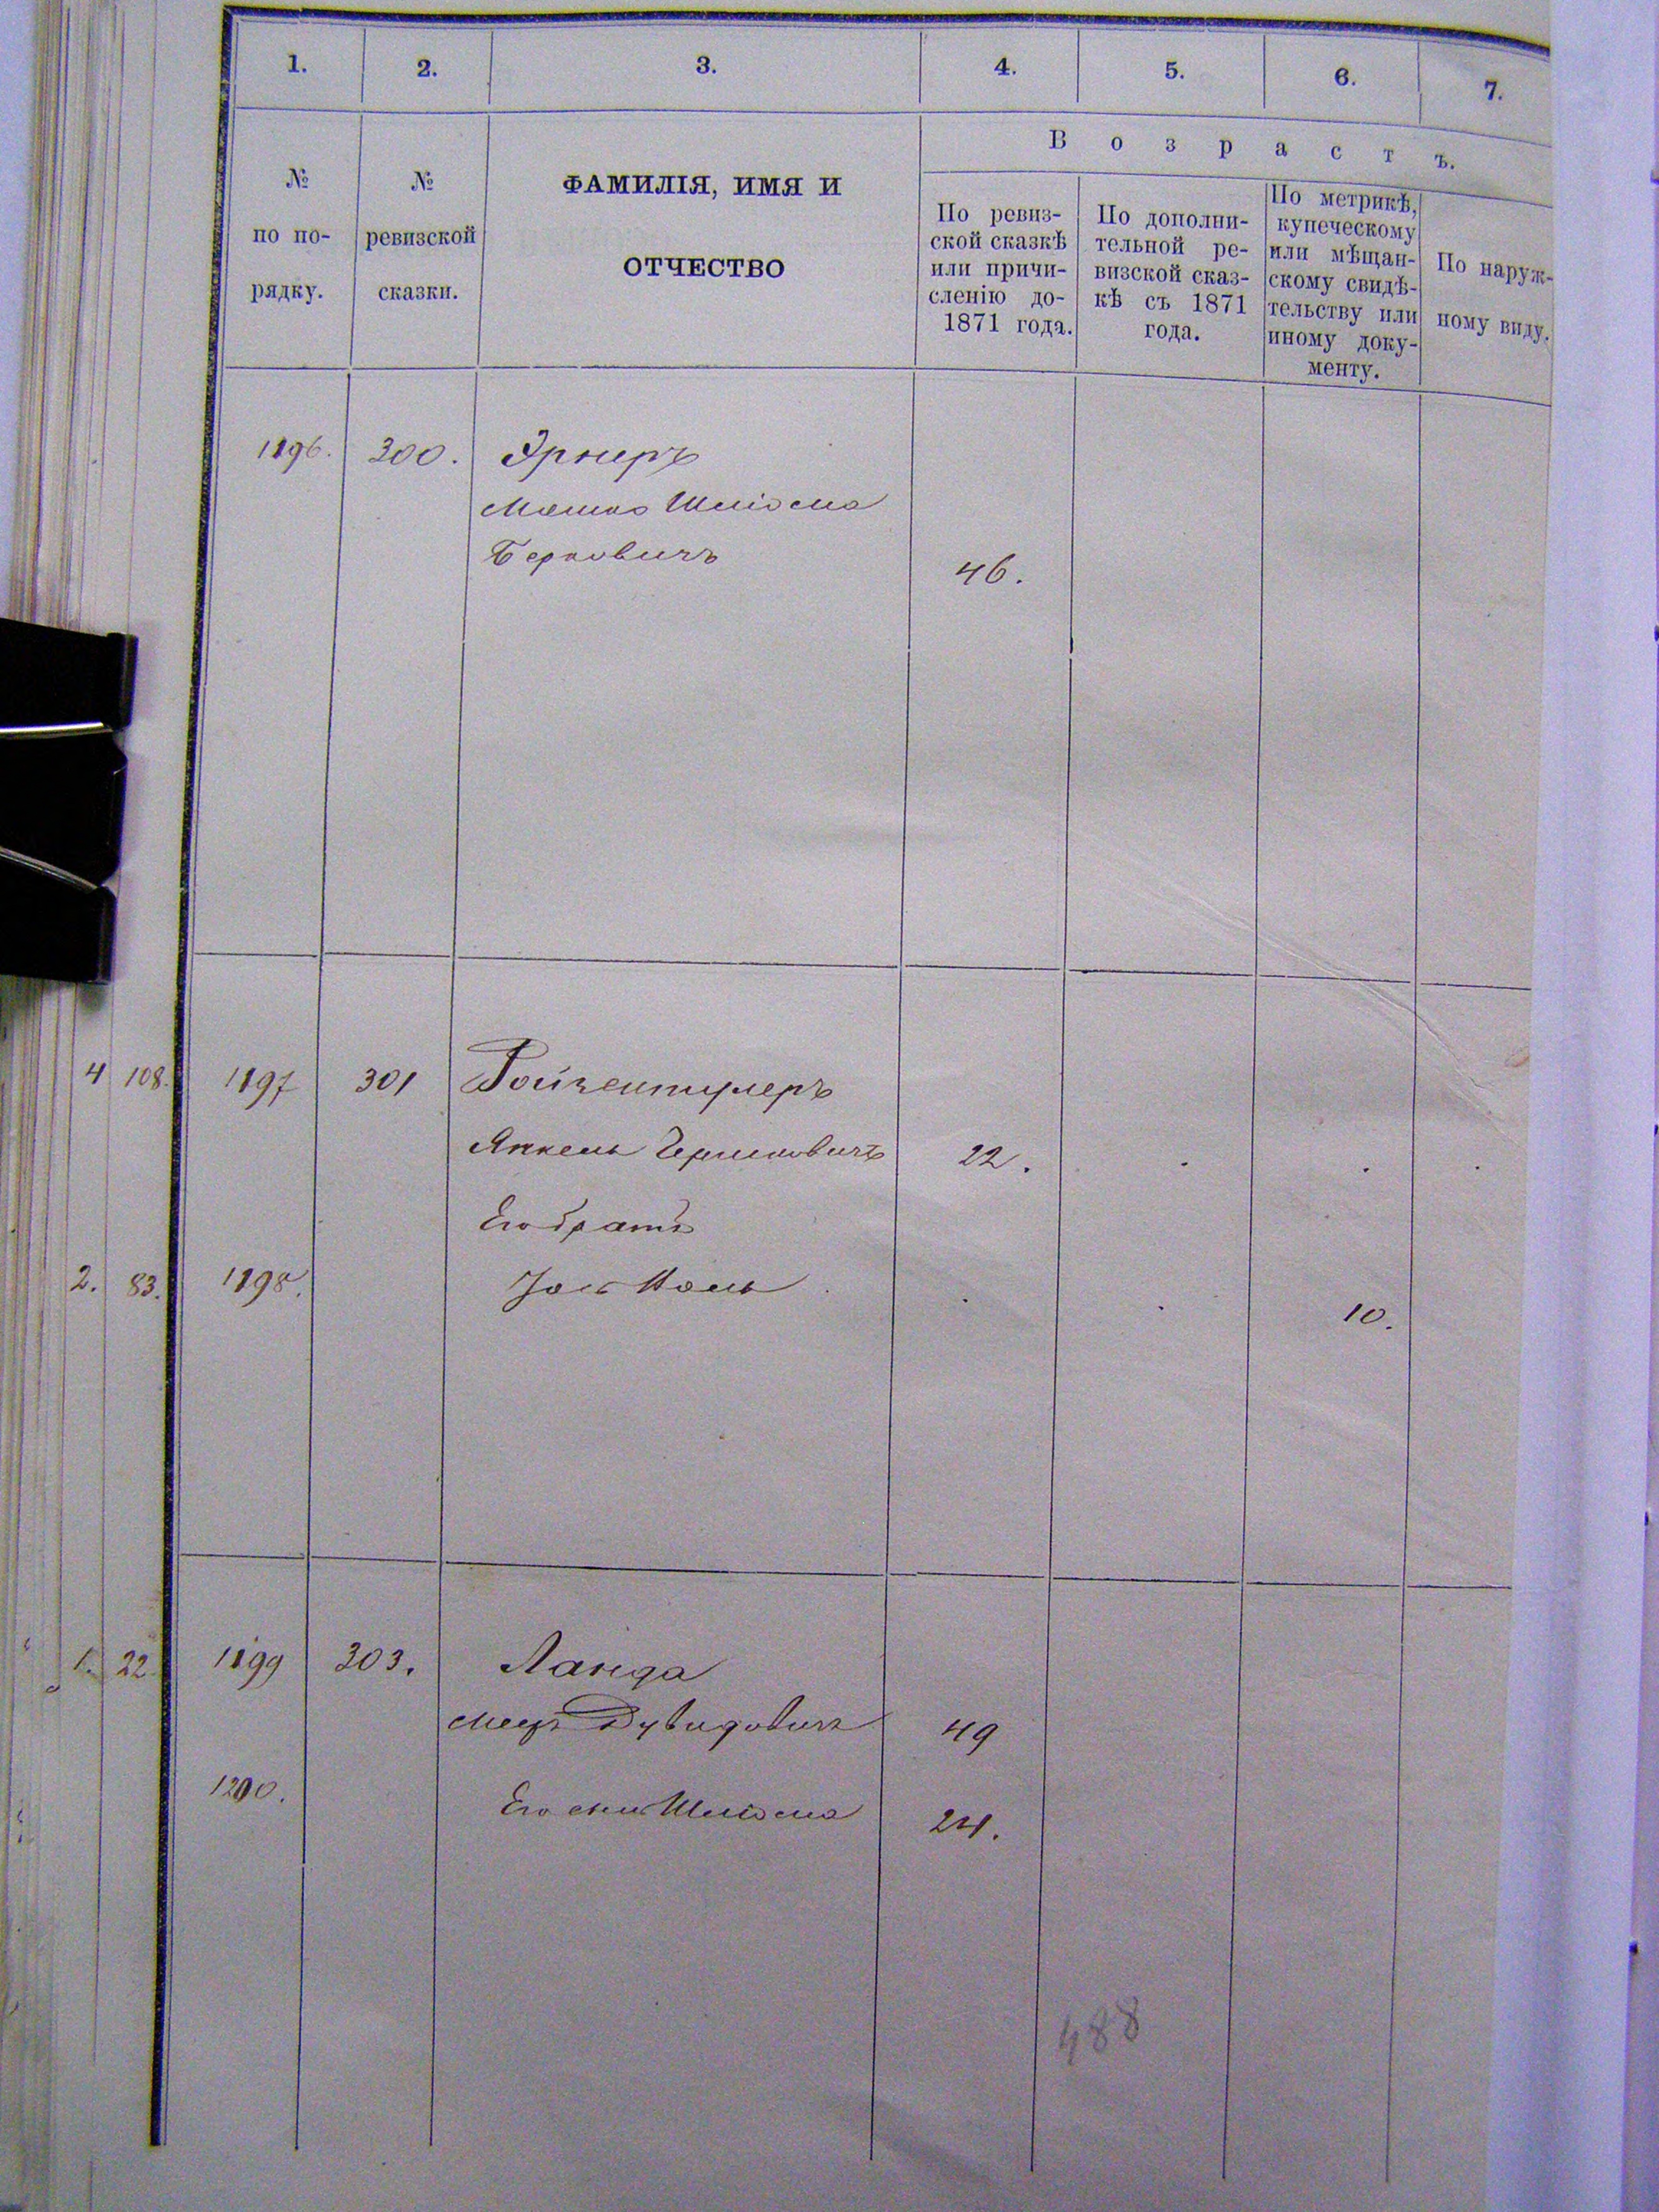 1. 2. 3. 4. 5. 6. 7.
№
по по-
рядку.
№
ревизской
сказки.
ФАМИЛІЯ, ИМЯ И
ОТЧЕСТВО
Возрастъ.
По ревиз-
ской сказкѣ
или причи-
сленію до-
1871 года.
По дополни-
тельной ре-
визской сказ-
кѣ съ 1871
года.
По метрикѣ,
купеческому
или мѣщан-
скому свидѣ-
тельству или
иному доку-
менту.
По наруж-
ному виду.
1196. 300. Эрнеръ
Мошко Шліома
Берковичъ
46.
4 108. 1197 301 Ройзентулеръ
Янкель Гершковичъ 22.
Его братъ
2. 83. 1198. 10.
1. 22 1199 303. Ланда
Мееръ Дувидовичъ 49
1200. Его сынъ Шліома 24.
488